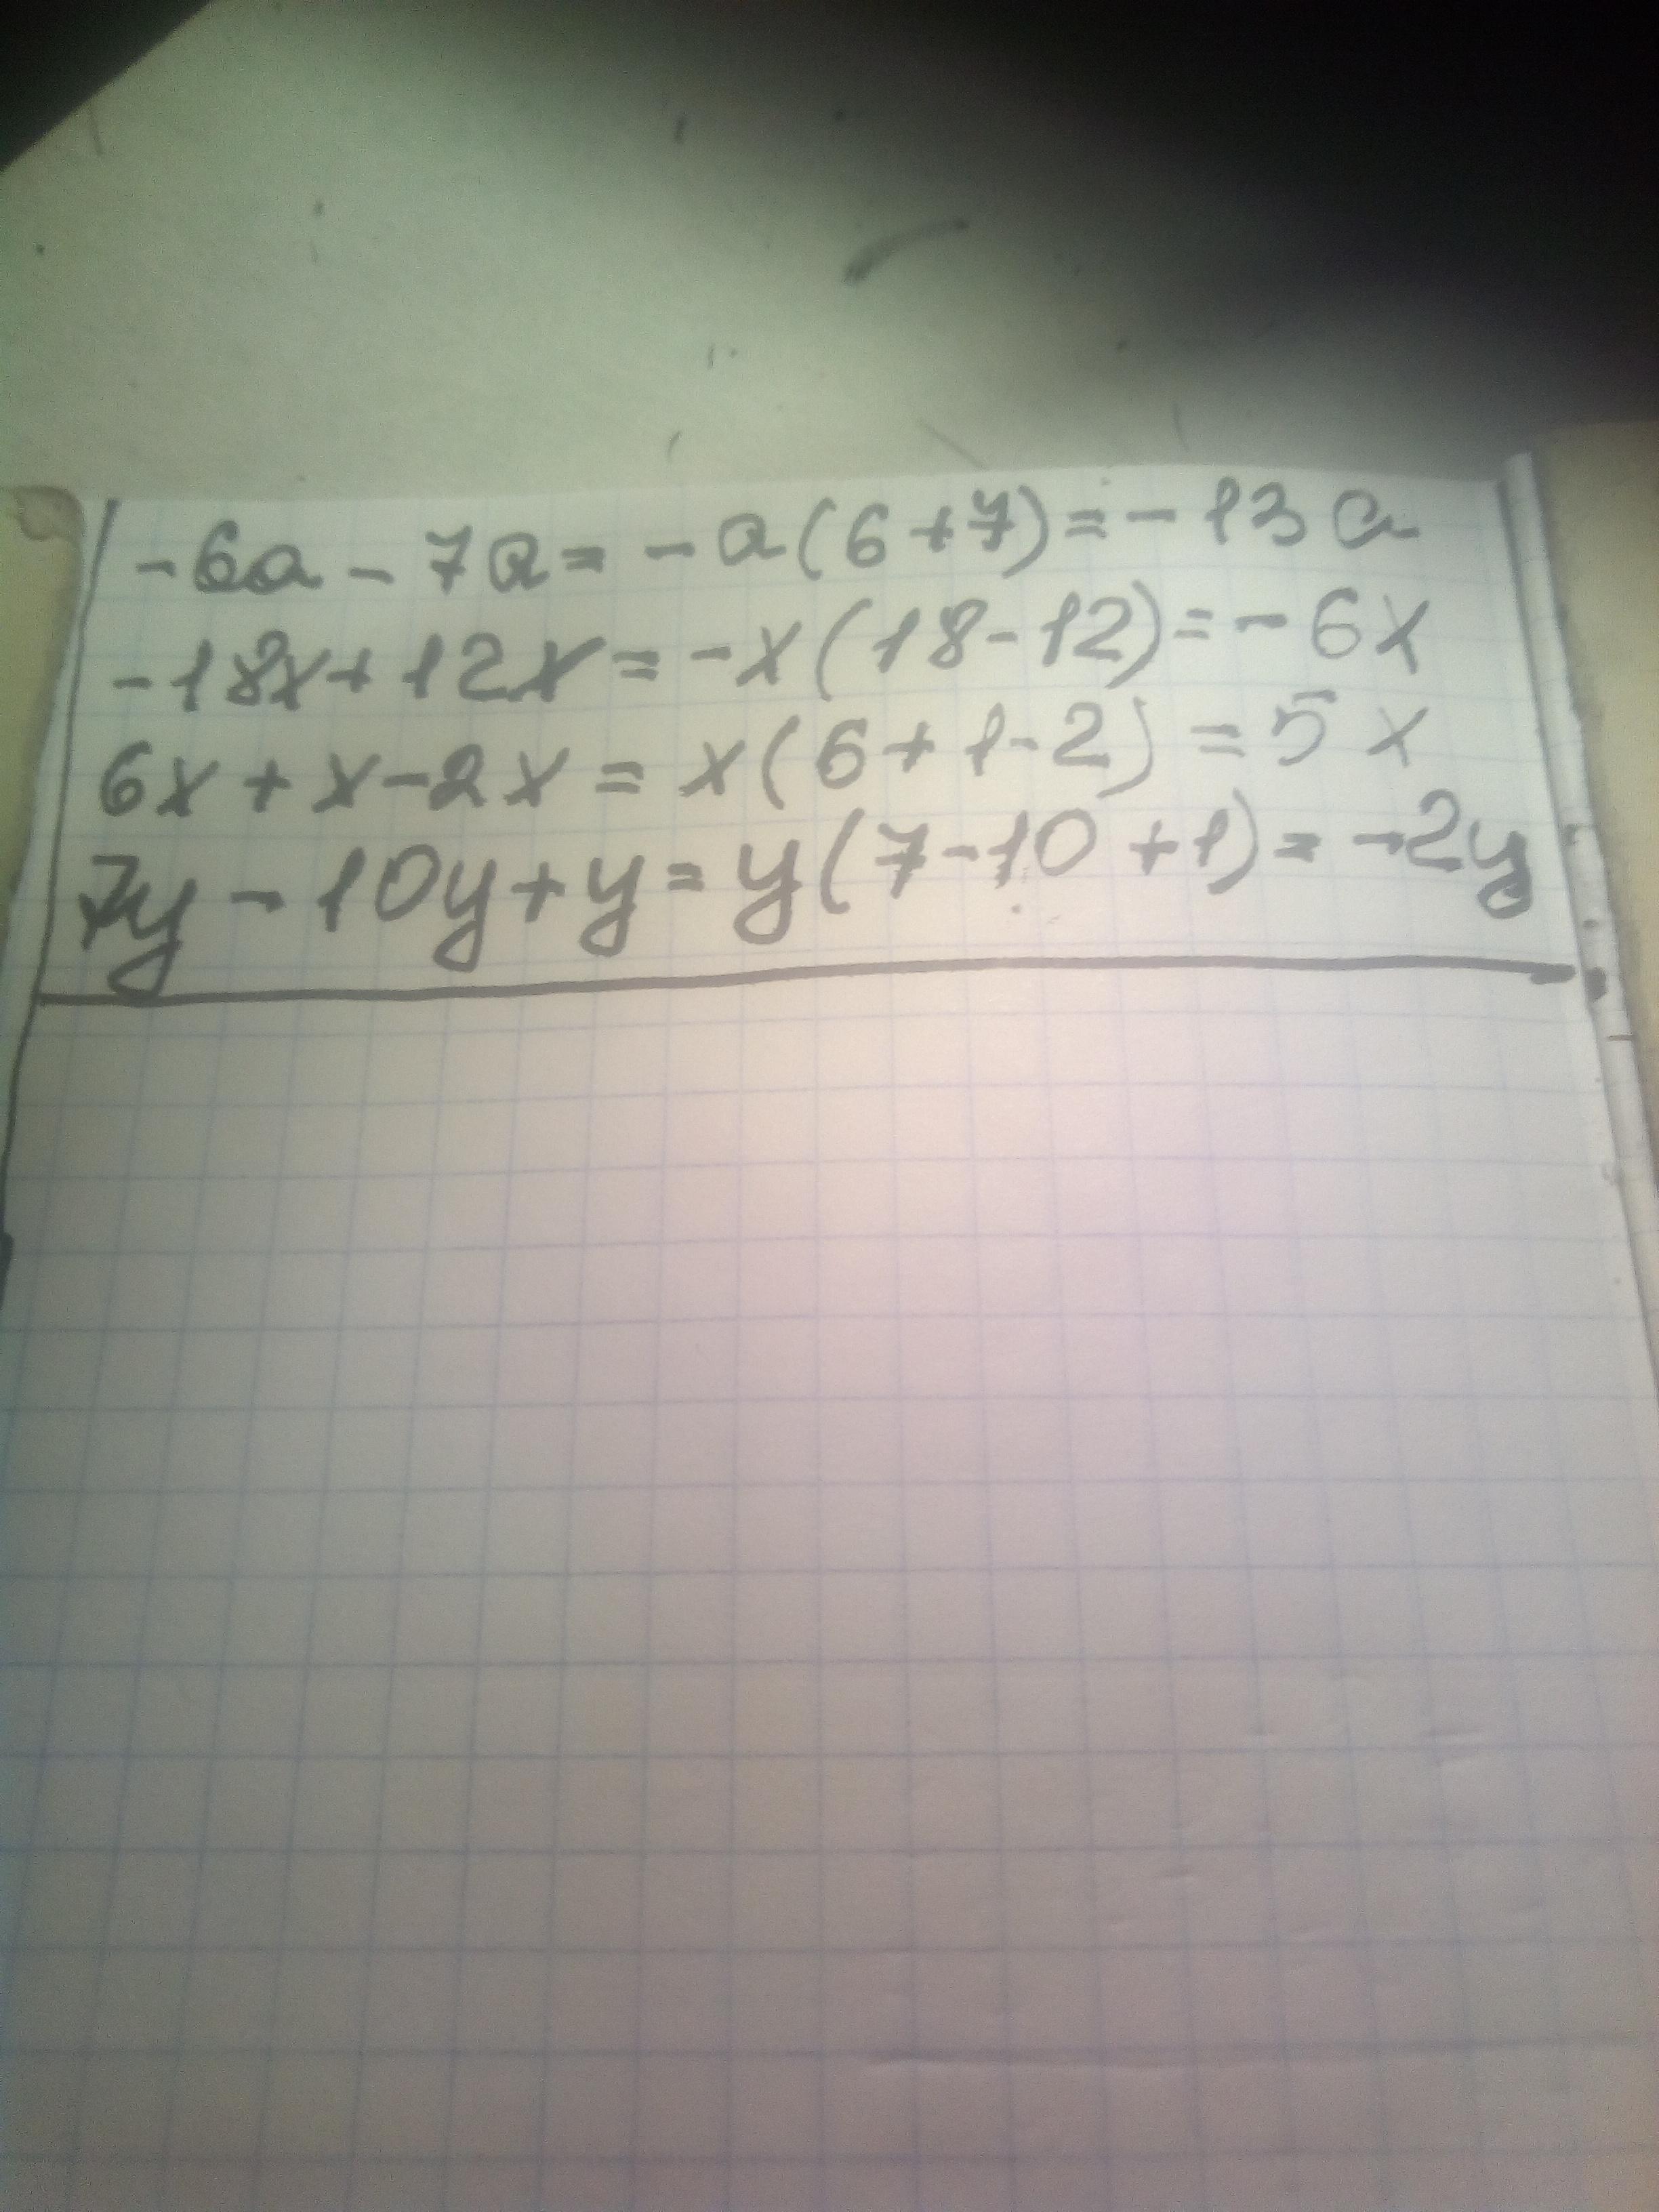 -6a - 7a = -a(6+7) = -13a
-18x+12x = -x(18-12) = -6x
6x + x-2x = x(6+1-2) = 5x
7y - 10y+y = y(7-10+1) = -2y